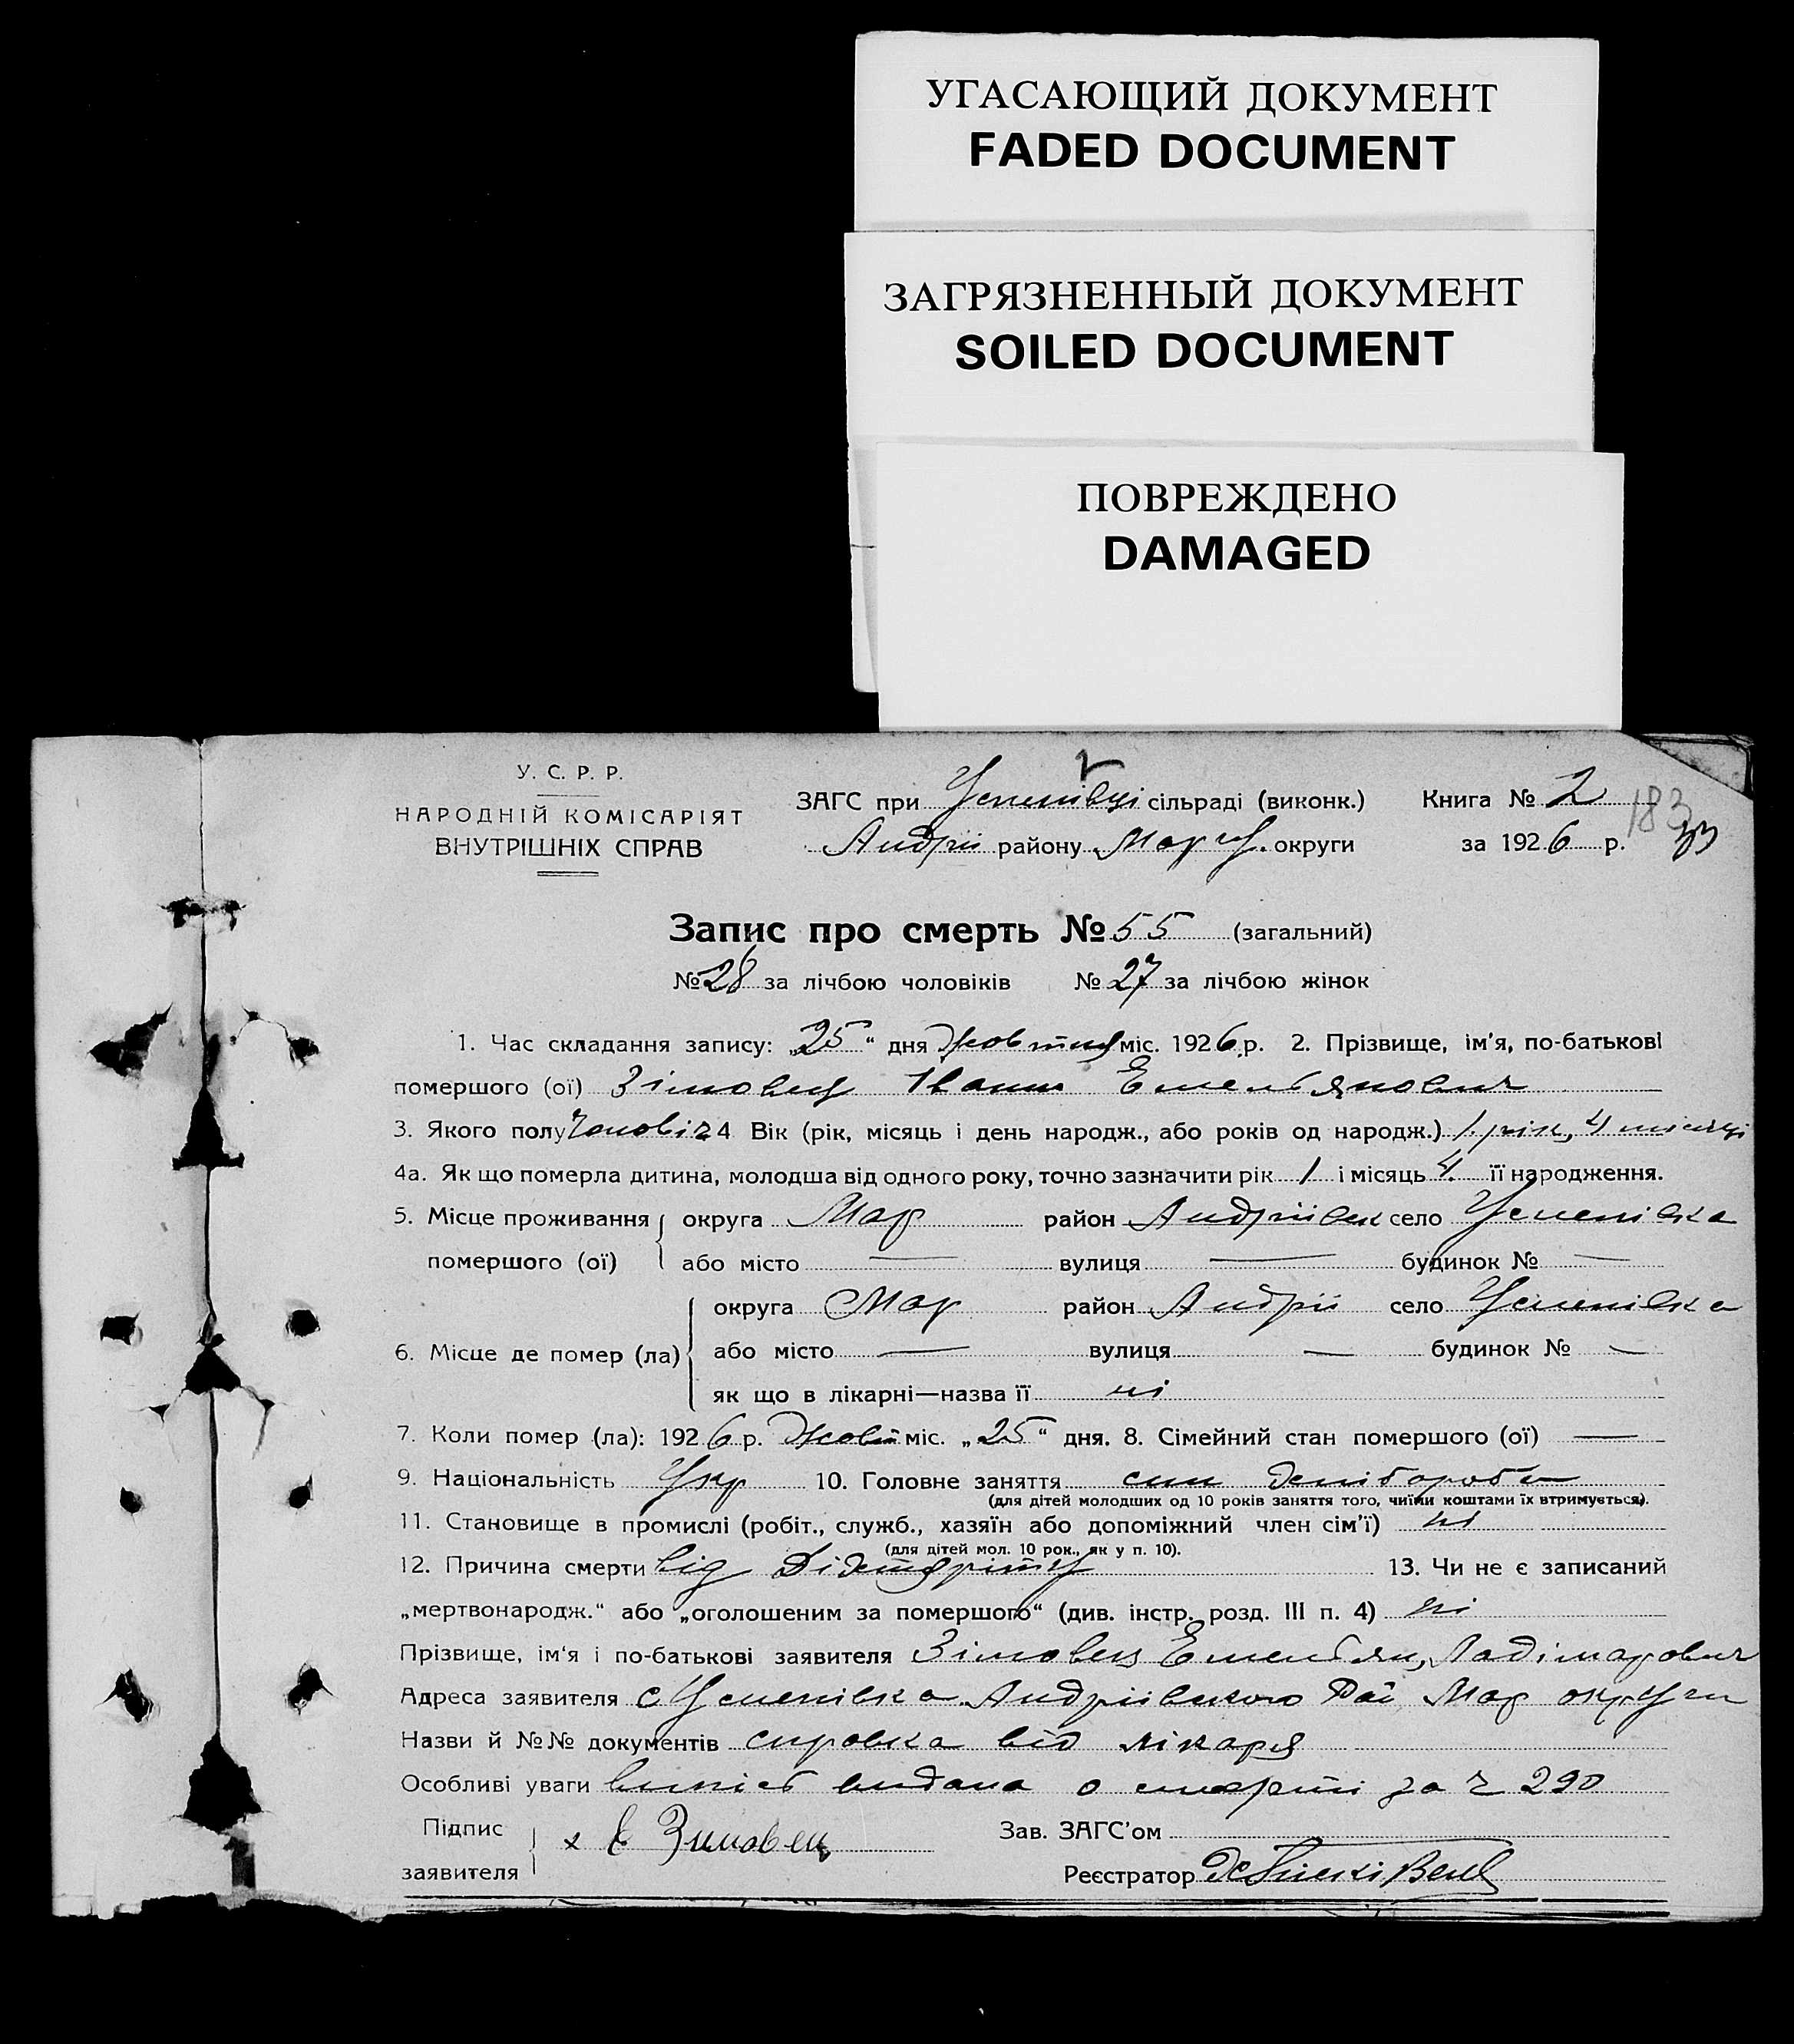 УГАСАЮЩИЙ ДОКУМЕНТ
FADED DOCUMENT
ЗАГРЯЗНЕННЫЙ ДОКУМЕНТ
SOILED DOCUMENT
ПОВРЕЖДЕНО
DAMAGED
У. С. Р. Р.
НАРОДНІЙ КОМІСАРІЯТ
ВНУТРІШНІХ СПРАВ
ЗАГС при Успенівці сільраді (виконк.) Книга № 2
Андрії району Мар округи за 1926 р.
183
Запис про смерть № 55 (загальний)
№ 28 за лічбою чоловіків № 27 за лічбою жінок
1. Час складання запису: „25“ дня Жовтня міс. 1926 р. 2. Прізвище, ім'я, по-батькові
помершого (ої) Зімовец Іванн Емельянович
3. Якого полу Чоловіч 4 Вік (рік, місяць і день народж., або років од народж.) 1 рік, 4 місяці
4а. Як що померла дитина, молодша від одного року, точно зазначити рік 1 і місяць 4 її народження.
5. Місце проживання помершого (ої) округа Мар район Андріївск село Успенівка
або місто — вулиця — будинок № —
6. Місце де помер (ла) округа Мар район Андрії село Успенівка
або місто — вулиця — будинок № —
як що в лікарні—назва її ні
7. Коли помер (ла): 1926 р. Жовт міс. „25“ дня. 8. Сімейний стан помершого (ої) —
9. Національність Укр 10. Головне заняття син хлібороба
(для дітей молодших од 10 років заняття того, чиїми коштами їх втримується).
11. Становище в промислі (робіт., служб., хазяїн або допоміжний член сім'ї) ні
(для дітей мол. 10 рок., як у п. 10).
12. Причина смерти від 13. Чи не є записаний
„мертвонародж.“ або „оголошеним за помершого“ (див. інстр. розд. III п. 4) ні
Прізвище, ім'я і по-батькові заявителя Зімовец Емельян, Ладімарович
Адреса заявителя с Успенівка Андріївского Рай Мар округи
Назви й №№ документів справка від лікаря
Особливі уваги випісь видана о смерті за 290
Підпис заявителя х Е Зимовец
Зав. ЗАГС'ом
Реєстратор